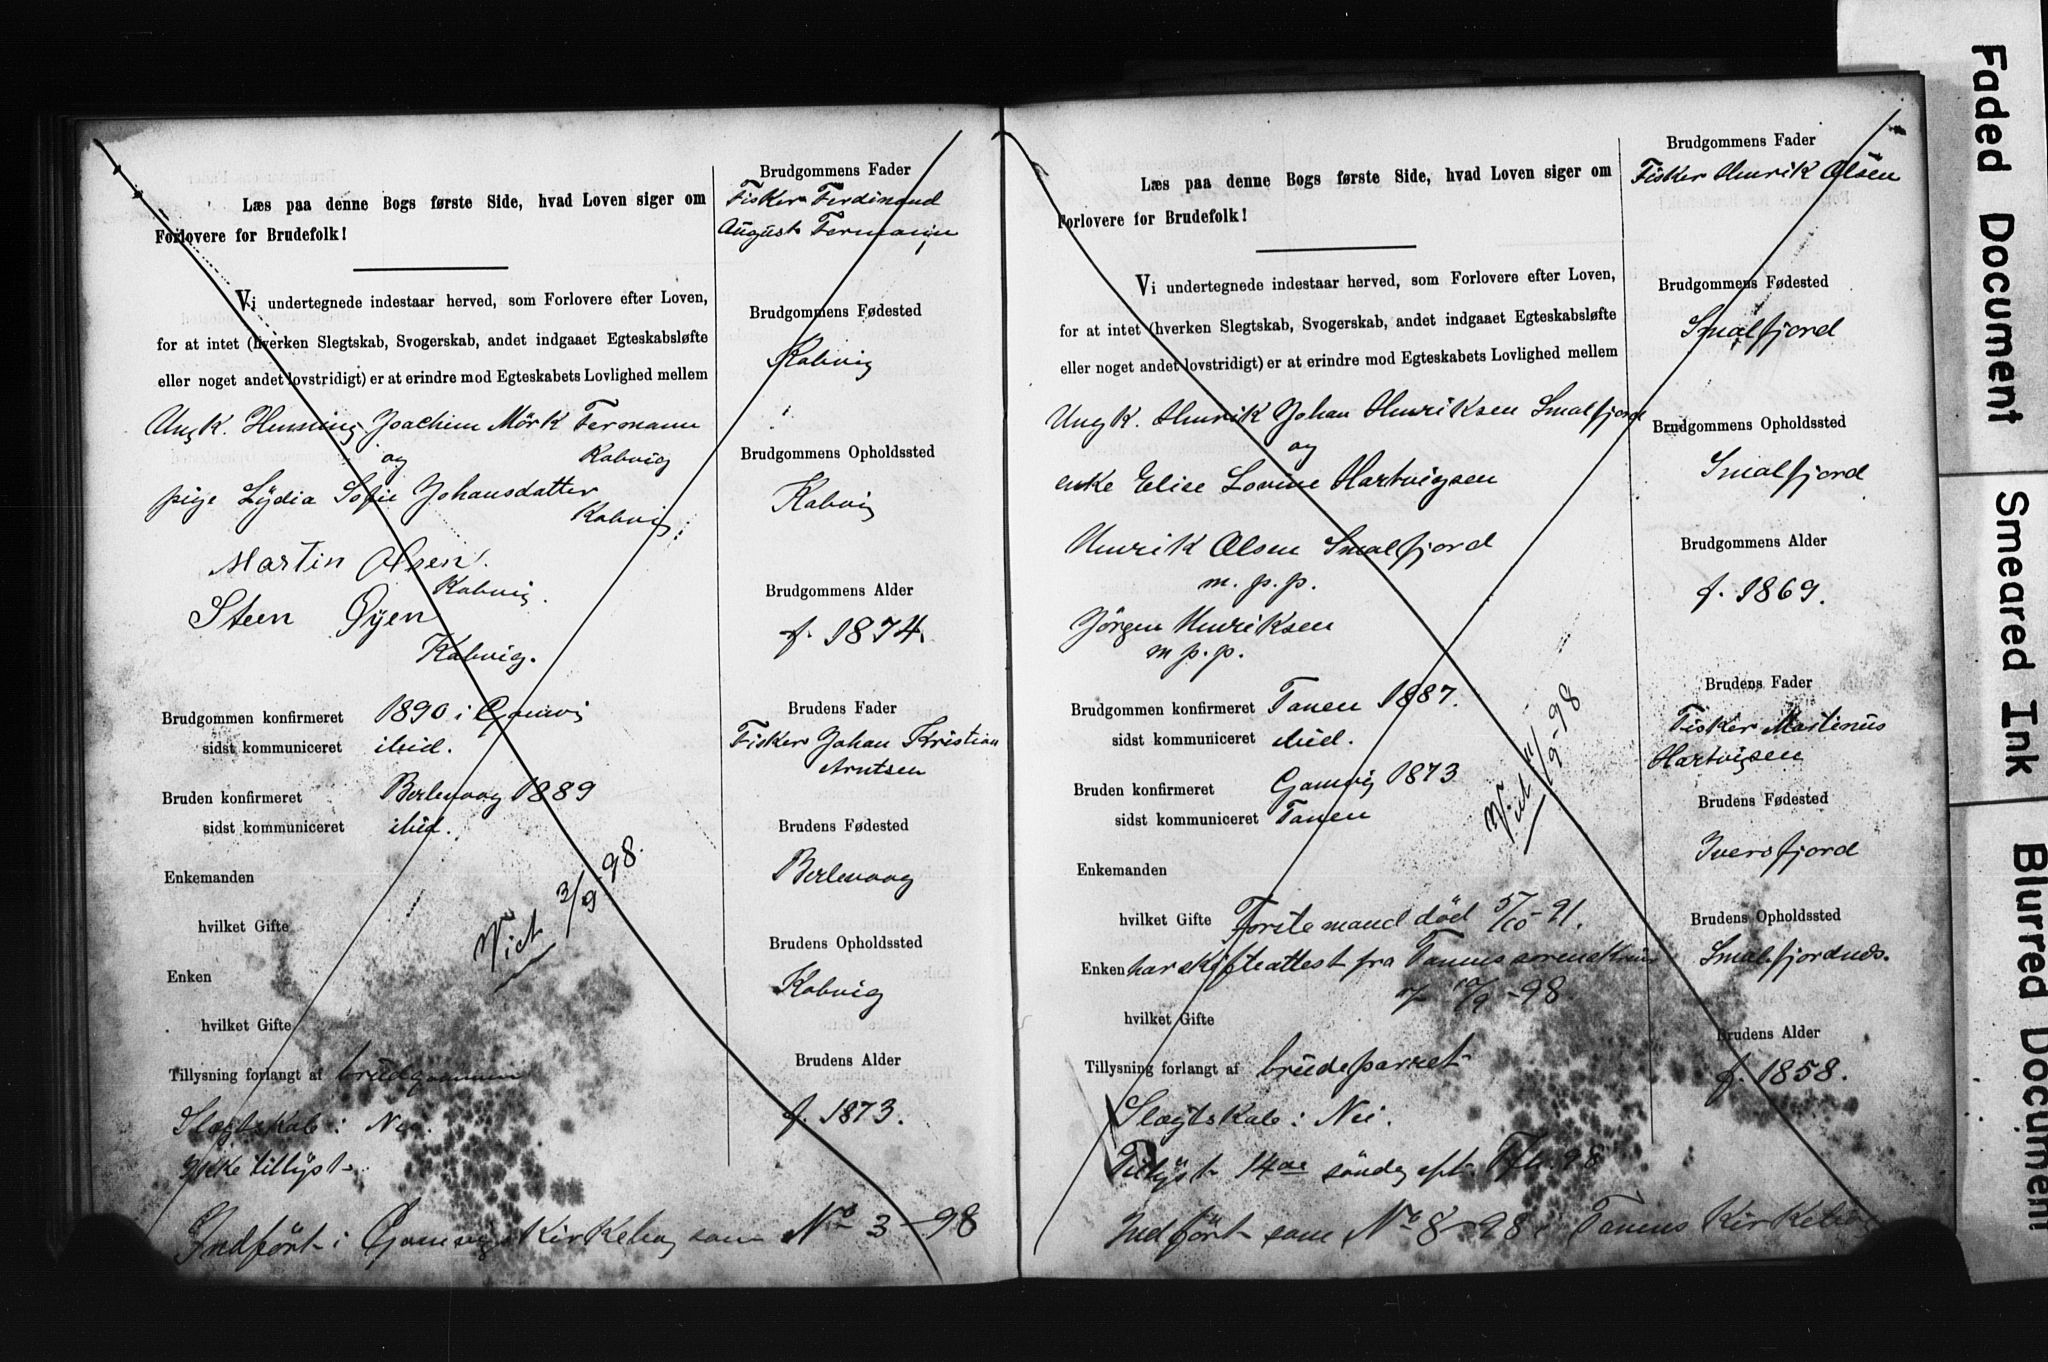 Læs paa denne Bogs første Side, hvad Loven siger om
Forlovere for Brudefolk!
Vi undertegnede indestaar herved, som Forlovere efter Loven,
for at intet (hverken Slegtskab, Svogerskab, andet indgaaet Egteskabsløfte
eller noget andet lovstridigt) er at erindre mod Egteskabets Lovlighed mellem
Ungk. Henning Joachim Mörk Fermann
Kobvig
og
pige Lydia Sofie Johansdatter
Kobvig
Martin Olsen
Kobvig.
Steen Øyen
Kobvig.
Brudgommen konfirmeret 1890 i Gamvig
sidst kommuniceret ibid.
Bruden konfirmeret Berlevaag 1889
sidst kommuniceret ibid.
Enkemanden
hvilket Gifte
Viet 3/9-98.
Enken
hvilket Gifte
Tillysning forlangt af brudgommen
Slægtskab: Nei.
Ikke tillyst
Indført i Gamvigs Kirkebog som No 3-98
Brudgommens Fader
Fisker Ferdinand
August Fermann
Brudgommens Fødested
Kobvig
Brudgommens Opholdssted
Kobvig
Brudgommens Alder
f. 1874.
Brudens Fader
Fisker Johan Kristian
Arntsen
Brudens Fødested
Berlevaag
Brudens Opholdssted
Kobvig
Brudens Alder
f. 1873.
Læs paa denne Bogs første Side, hvad Loven siger om
Forlovere for Brudefolk!
Vi undertegnede indestaar herved, som Forlovere efter Loven,
for at intet (hverken Slegtskab, Svogerskab, andet indgaaet Egteskabsløfte
eller noget andet lovstridigt) er at erindre mod Egteskabets Lovlighed mellem
Ungk. Henrik Johan Henriksen Smalfjord
og
enke Elise Lovine Hartvigsen
Henrik Olsen Smalfjord
m. p. p.
Jörgen Henriksen
m p. p.
Brudgommen konfirmeret Tanen 1887.
sidst kommuniceret ibid.
Bruden konfirmeret Gamvig 1873
sidst kommuniceret Tanen
Viet 11/9-98
Enkemanden
hvilket Gifte Förste mand död 5/10-91.
Enken har skifteattest fra Tanens sorenskriv
af 10/9-98
hvilket Gifte
Tillysning forlangt af brudeparret
Slægtskab: Nei.
Tillyst 14de søndag eft. Tfh. 98
Indført som No 8-98 i Tanens Kirkebog
Brudgommens Fader
Fisker Henrik Olsen
Brudgommens Fødested
Smalfjord
Brudgommens Opholdssted
Smalfjord
Brudgommens Alder
f. 1869.
Brudens Fader
Fisker Martinus
Hartvigsen
Brudens Fødested
Iversfjord
Brudens Opholdssted
Smalfjordnes.
Brudens Alder
f. 1858.
Faded Document
Smeared Ink
Blurred Document